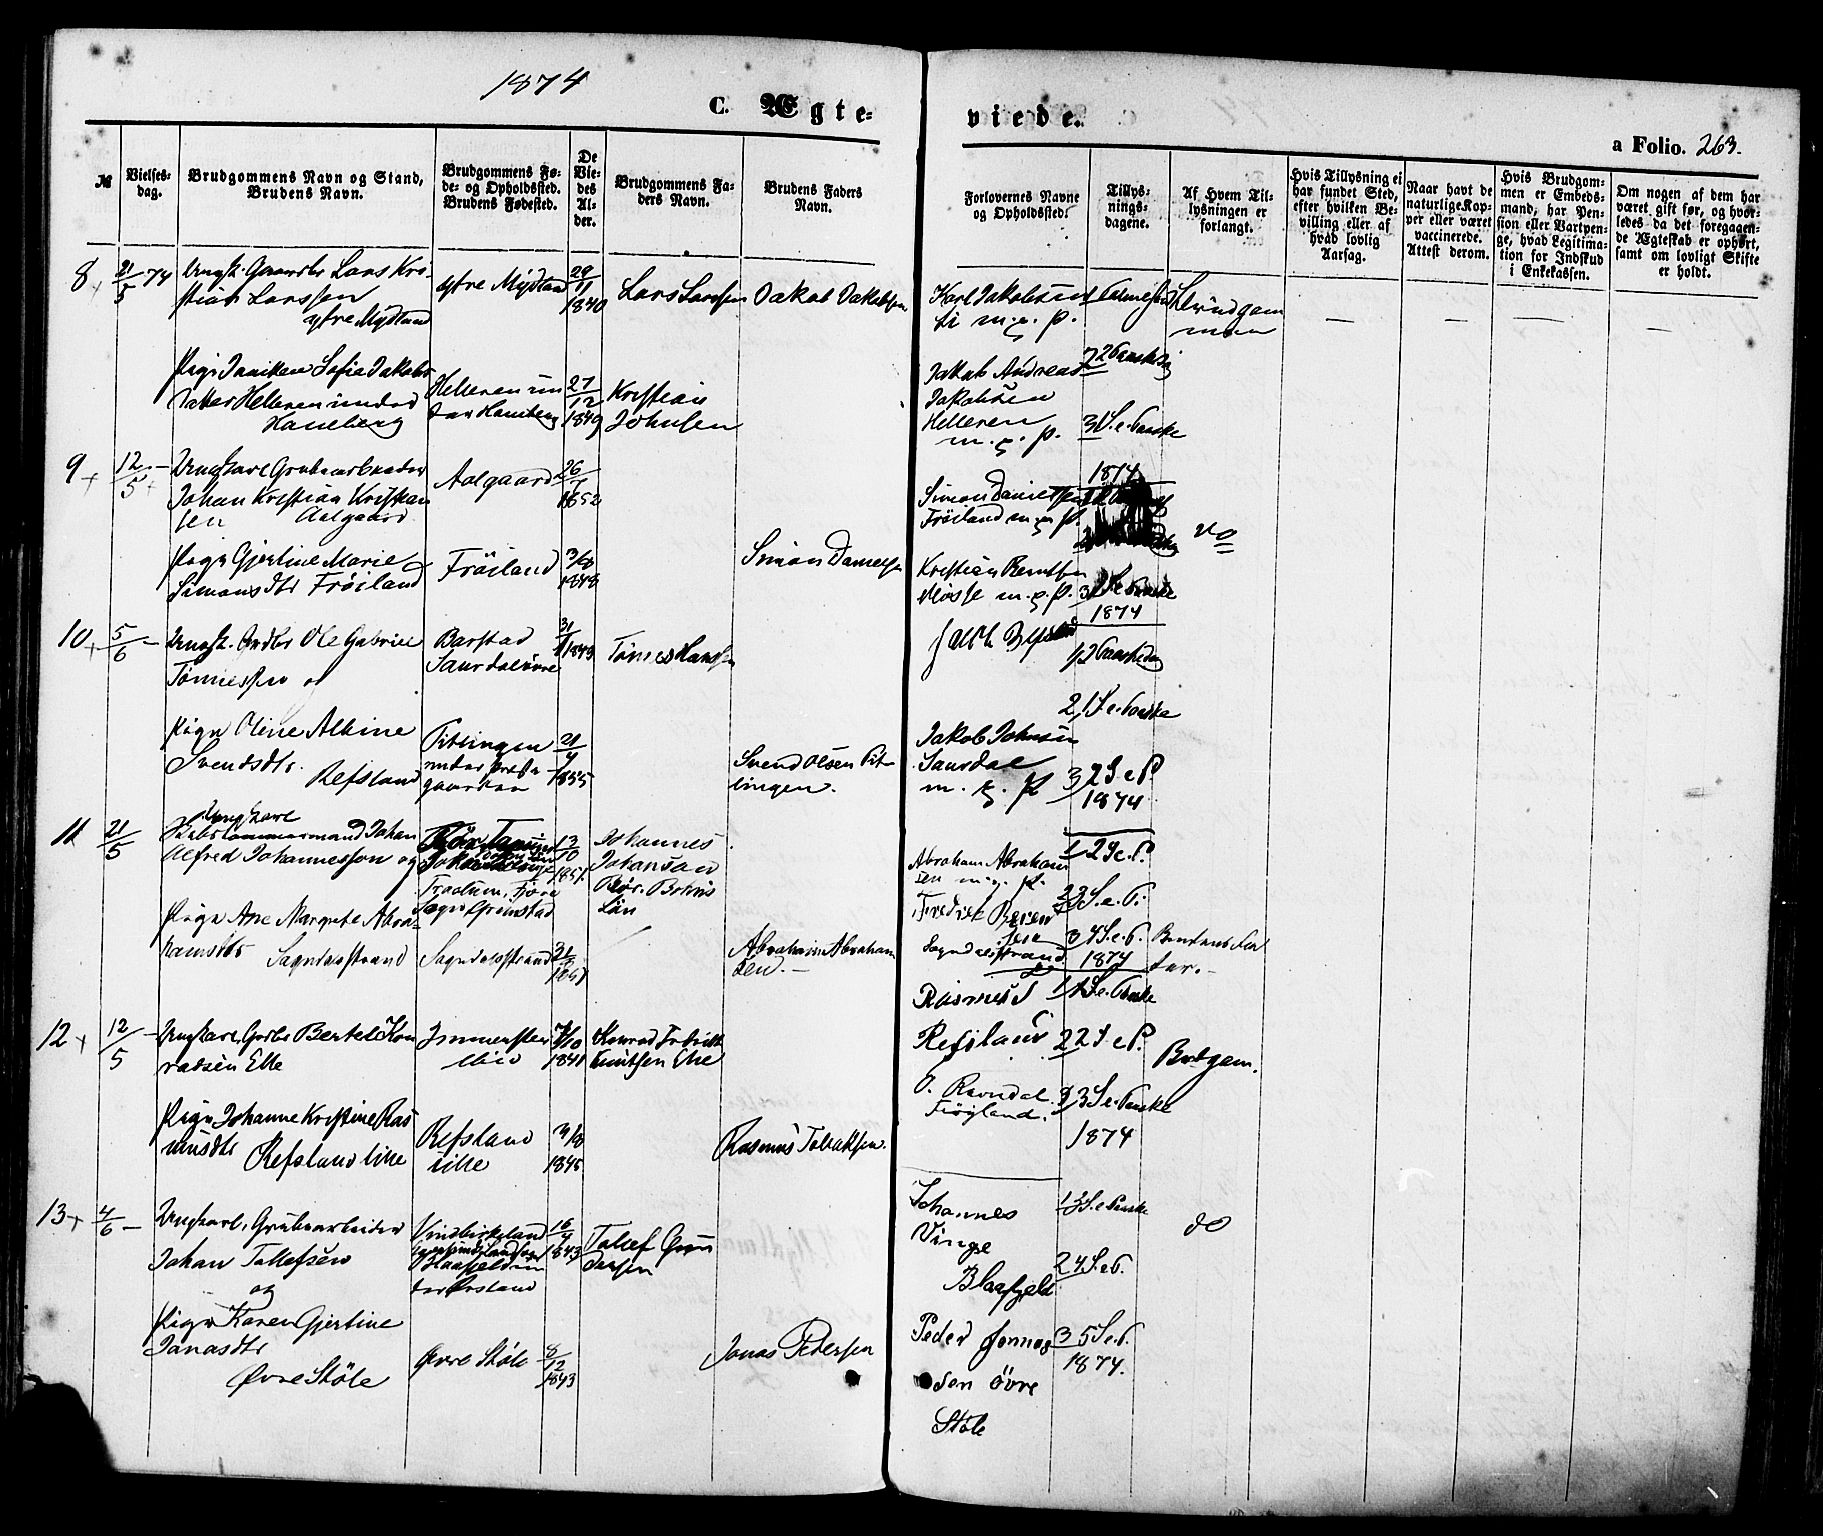 1874
C. Ægte-
viede.
a Folio. 263.
№
Vielses-
dag.
Brudgommens Navn og Stand,
Brudens Navn.
Brudgommens Fø-
de- og Opholdssted.
Brudens Fødested.
De
Vie-
des
Al-
der.
Brudgommens Fa-
ders Navn.
Brudens Faders
Navn.
Forlovernes Navne
og Opholdssted.
Tillys-
nings-
dagene.
Af Hvem Til-
lysningen er
forlangt.
Hvis Tillysning ei
har fundet Sted,
efter hvilken Be-
villing eller af
hvad lovlig
Aarsag.
Naar havt de
naturlige Kop-
per eller været
vaccinerede.
Attest derom.
Hvis Brudgom-
men er Embeds-
mand, har Pen-
sion eller Vartpen-
ge, hvad Legitima-
tion for Indskud
i Enkekassen.
Om nogen af dem har
været gift før, og hvor-
ledes da det foregaaen-
de Ægteskab er ophørt,
samt om lovligt Skifte
er holdt.
8 21/5 74 Ungk. Gaardbr Lars Kri-
stian Larssen
ytre Mydland
ytre Mydland
29/11 1840
Lars Larssen
Jakob Jakobsen
Karl Jakobsen
m. g. P.
Pige Janiken Sofie Jakobs-
datter Helleren under
Haneberg
Helleren un-
der Haneberg
27/12 1849
Kristian
Johnsen
Jakob Andreas
Jakobsen
Helleren
m. g. P.
3 1 S. e. Paaske
1874
9 12/5 Ungkarl Grubearbeider
Johan Kristian Kristian-
sen Aalgaard
Aalgaard
26/7 1852
Simon Danielsen
Frøiland m. g. P.
do
Pige Gjertine Marie
Simonsdtr Frøiland
Frøiland
3/8 1848
Simon Danielsen
Kristian Berntsen
Mosse m. g. P.
3 2 S. e. Paaske
1874
10 5/6 Ungk. Grdbr Ole Gabriel
Tønnessen og
Barstad
Saurdal øvre
1849
Tønnes Hanssen
1, 2 Paaskedag
2, 1 S. e. Paaske
Pige Oline Alvine
Svendsdtr.
Refsland
under Præste-
gaarden
21/4 1855
Svend Olsen
Jakob Johnsen
Saurdal
m. g. P.
3, 2 S. e. P.
1874
11 21/5 Ungkarl
Skibstømmermand Johan
Alfred Johannesson og
13/10 1851
Johannes
Johanson
Län
Abraham Abraham-
sen m. g. P.
1 2 S. e. P.
Fredrik Bernt-
sen
2 3 S. e. P.
Pige Ane Margrete Abra-
hamsdtr Sogndalsstrand
Sogndalsstrand
Abraham Abraham-
sen.
Sogndalsstrand
3 4 S. e. P.
1874
Brudens Fa-
der.
12 12/5 Ungkarl, Grdbr Bertel Kon-
radsen Eke
Immerstein
1841
Konrad Fredrik
Knutsen Eke
Rasmus T
Refsland
1 1 S. e. Paaske
2 2 S. e. P.
Brdgom.
Pige Johanne Kristine Ras-
musdtr Refsland lille
Refsland
lille
1845
Rasmus Tobiassen.
O. Ravndal.
Frøyland.
3 3 S. e. Paaske
1874
13 4/6 Ungkarl, Grubearbeider
Johan Tollefsen
og
Vindbirkeland
Blaafjeld un-
der Ørsland
16/4 1843
Tollef Gun-
dersen
Johannes
Vinge
Blaafjeld
1 3 S. e. Paaske
2 4 S. e. P.
do
Pige Karen Gjertine
Jonasdtr
Øvre Støle
Øvre Støle
8/12 1843
Jonas Pedersen
Peder Jonnas-
sen övre
Støle
3 5 S. e. P.
1874.